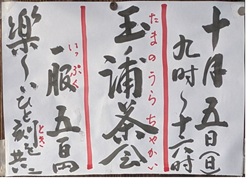 十月五日(日)
九時〜十六時
たまのうらちゃかい
玉ノ浦茶会
いっぷく
一服 五百円
とき
楽し〜いひと刻を共に